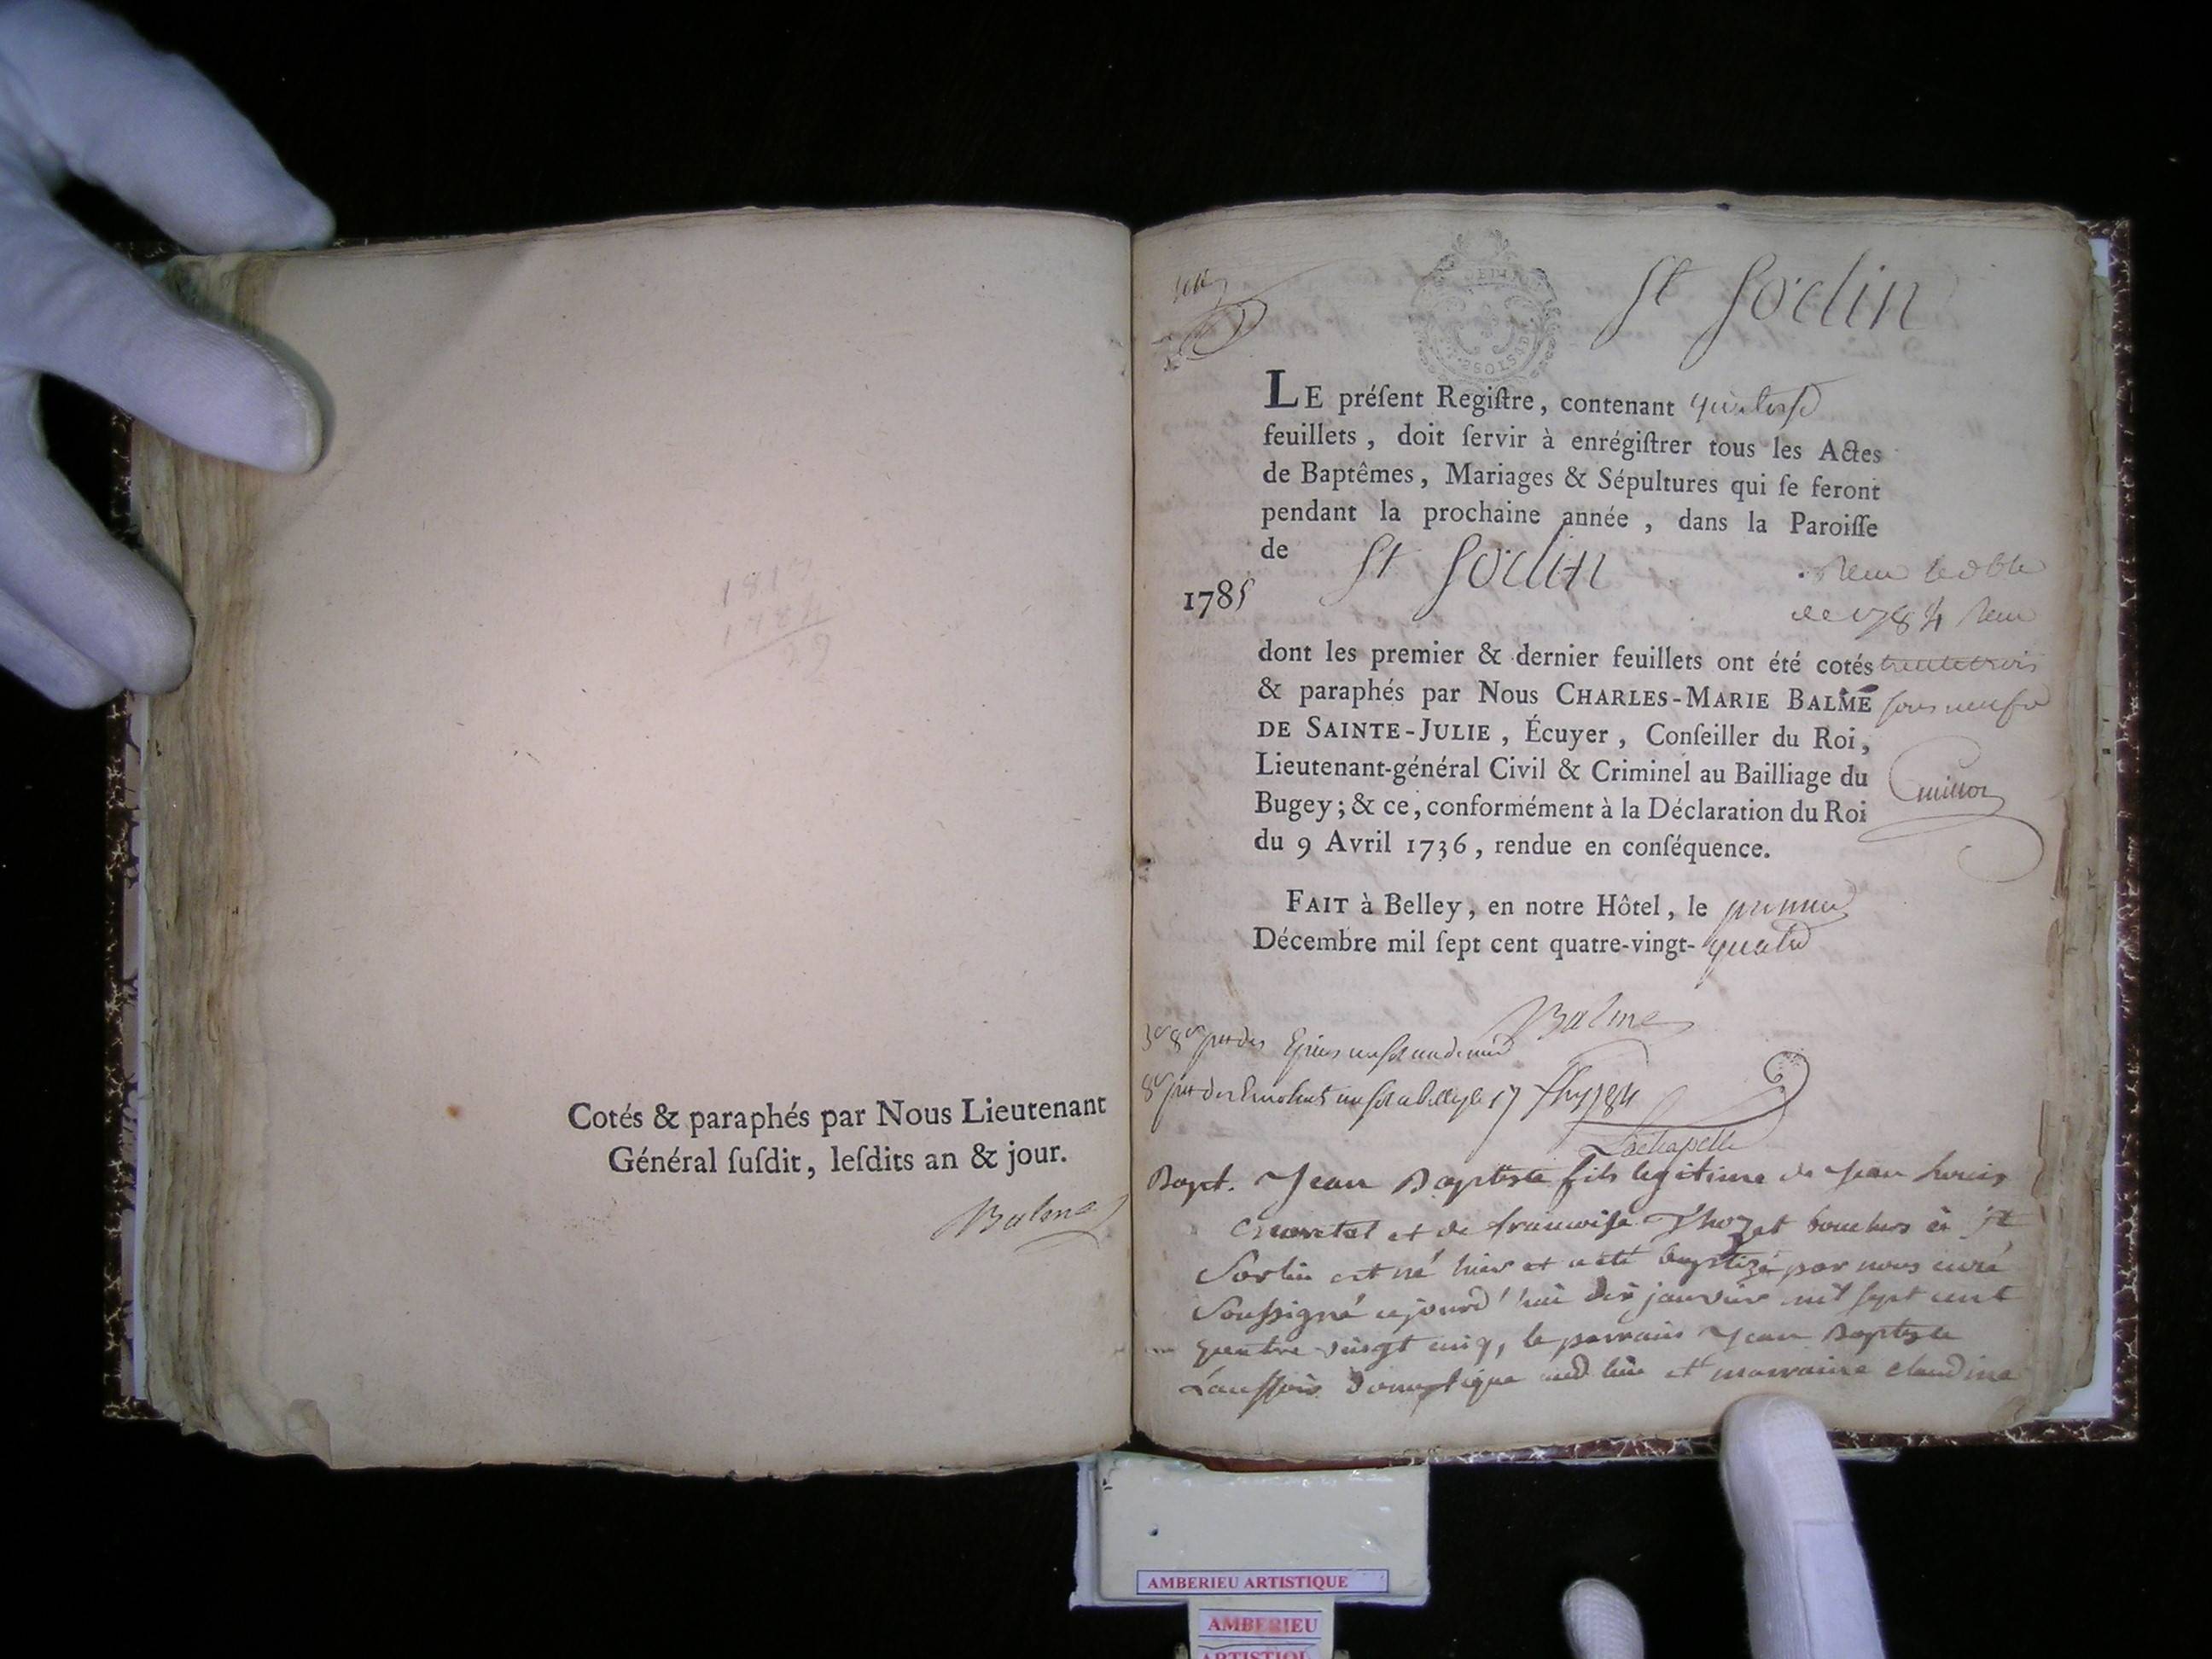 1817
1784
Cotés & paraphés par Nous Lieutenant
Général ſuſdit, leſdits an & jour.
Balme
St Sorlin
LE préſent Regiſtre, contenant
feuillets, doit ſervir à enrégiſtrer tous les Actes
de Baptêmes, Mariages & Sépultures qui ſe feront
pendant la prochaine année, dans la Paroiſſe
de St Sorlin
1785
dont les premier & dernier feuillets ont été cotés
& paraphés par Nous CHARLES-MARIE BALME
DE SAINTE-JULIE, Écuyer, Conſeiller du Roi,
Lieutenant-général Civil & Criminel au Bailliage du
Bugey; & ce, conformément à la Déclaration du Roi
du 9 Avril 1736, rendue en conſéquence.
FAIT à Belley, en notre Hôtel, le premier
Décembre mil ſept cent quatre-vingt-quatre
Balme
Lachapelle
Bapt. Jean Baptiste fils legitime de Jean Louis
et de francoise Thozet a St
Sorlin est né hier et a été baptizé par nous curé
Soussigné ce jourd'hui dix janvier mil sept cent
quatre vingt cinq, le parrain Jean Baptiste
domestique aud lieu et marraine claudine
AMBERIEU ARTISTIQUE
AMBERIEU
ARTISTIQUE